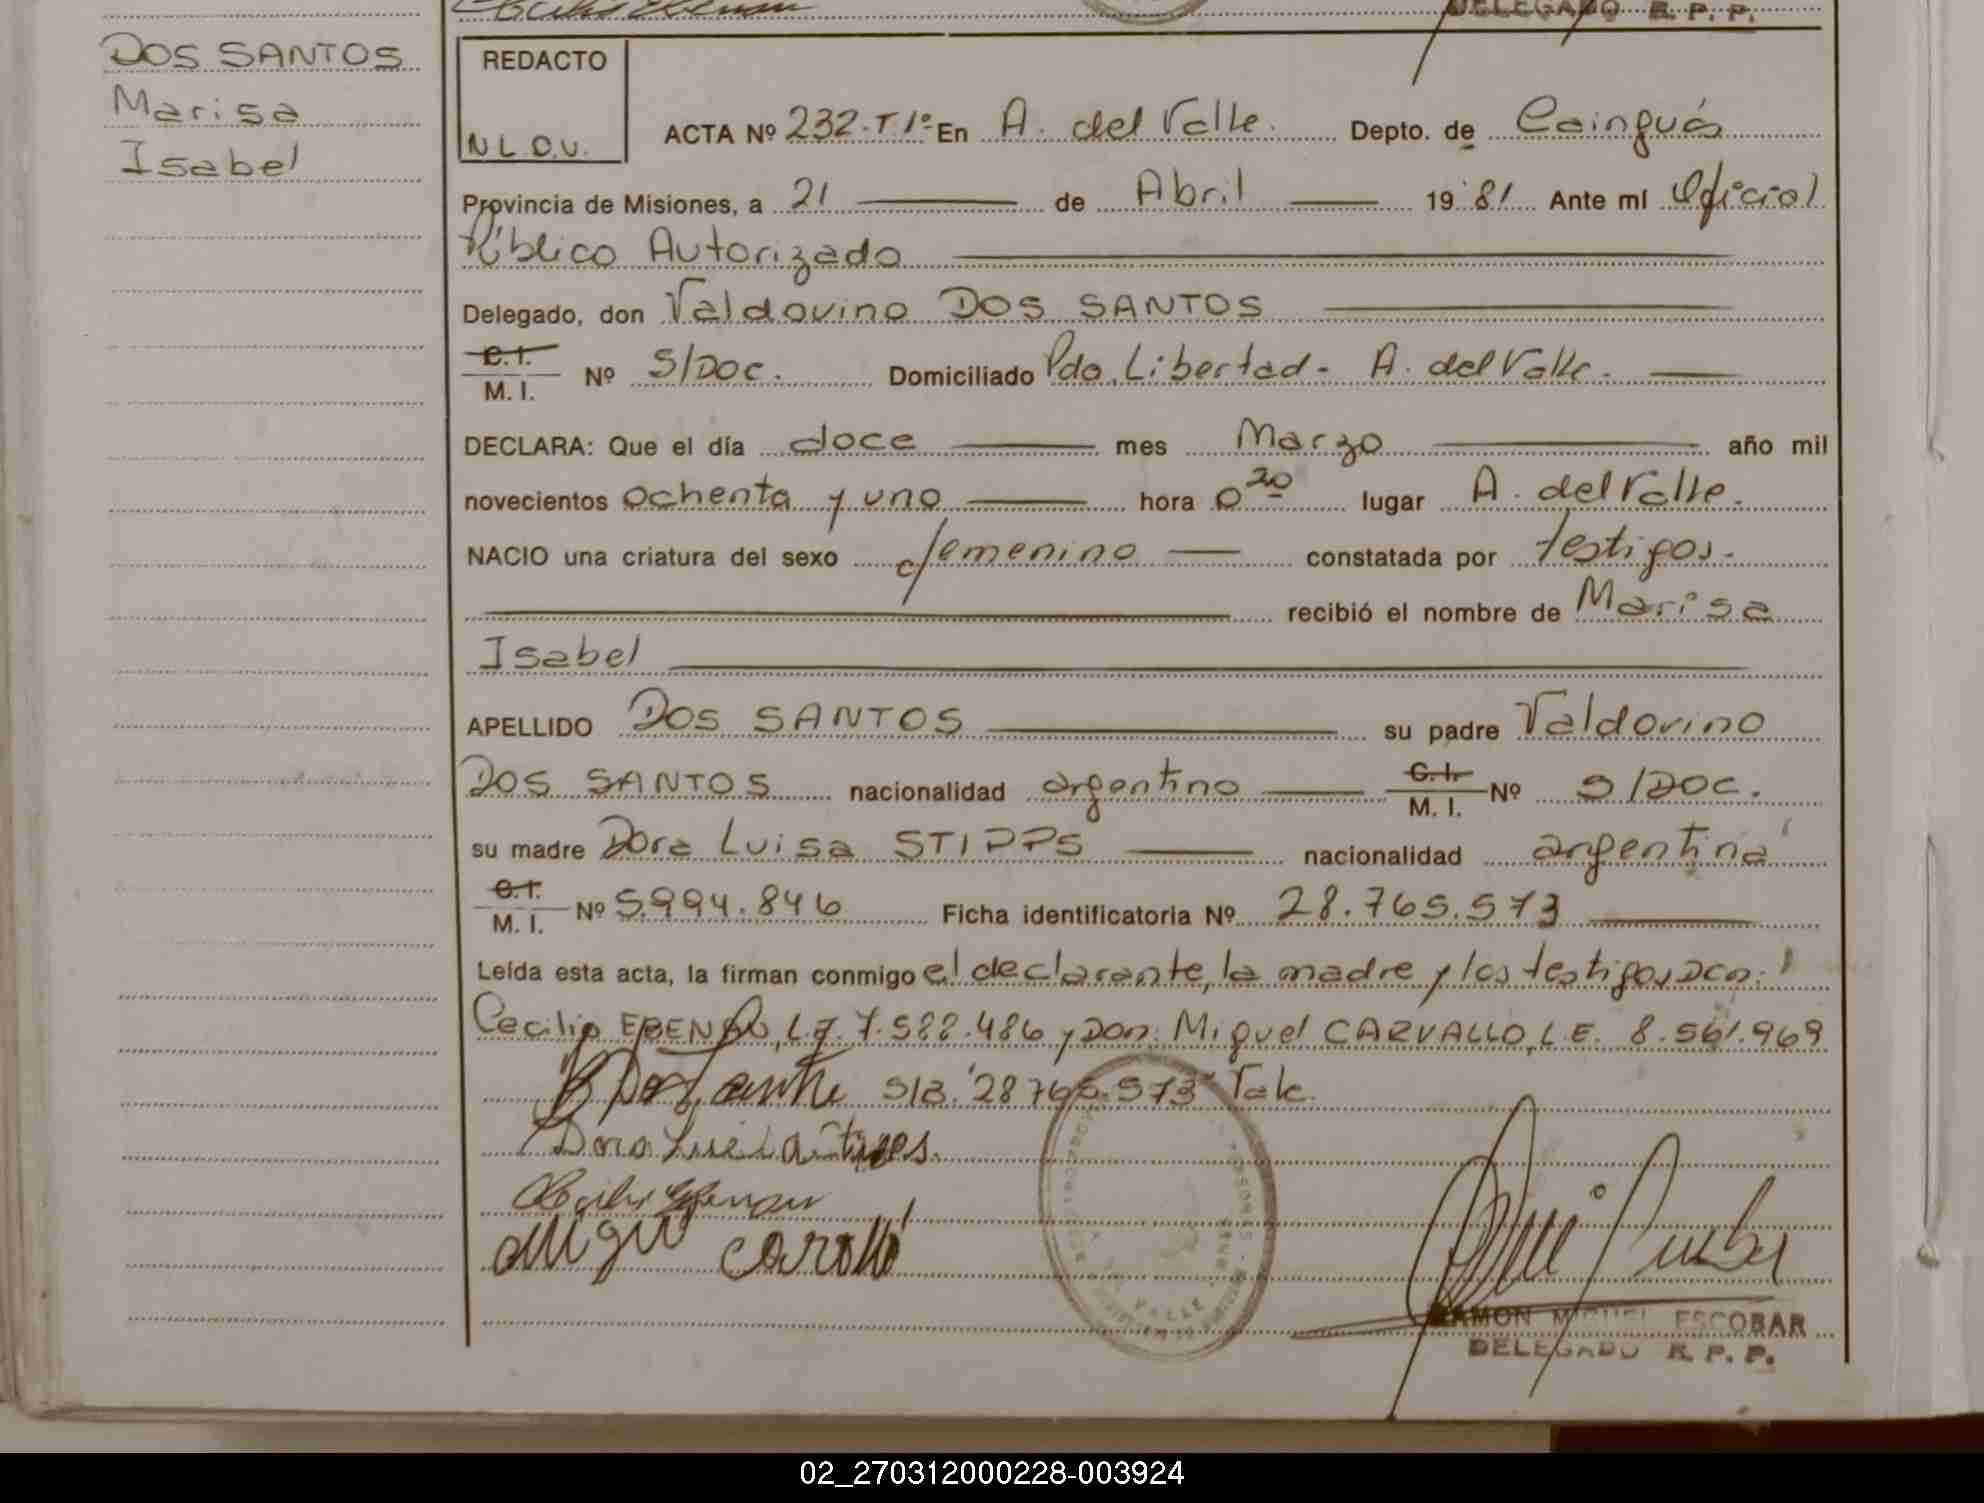 DELEGADO R. P. P.
DOS SANTOS
Marisa
Isabel
REDACTO
N L. O. V.
ACTA Nº 232-T1º En A. del Valle. Depto. de Cainguás
Provincia de Misiones, a 21 de Abril 1981 Ante mí Oficial
Público Autorizado
Delegado, don Valdovino DOS SANTOS
C.I.
M. I. Nº S/DOC. Domiciliado Pdo. Libertad - A. del Valle.
DECLARA: Que el día doce mes Marzo año mil
novecientos ochenta y uno hora 0 20 lugar A. del Valle.
NACIO una criatura del sexo femenino constatada por testigos.
recibió el nombre de Marisa
Isabel
APELLIDO DOS SANTOS su padre Valdovino
DOS SANTOS nacionalidad argentino C.I. M. I. Nº S/DOC.
su madre Dora Luisa STIPPS nacionalidad argentina
C.I.
M. I. Nº 5.994.846 Ficha identificatoria Nº 28.765.573
Leída esta acta, la firman conmigo el declarante, la madre y los testigos Dcn.
Cecilio L.E. 7.588.486 y Don. Miguel CARVALLO, L.E. 8.561.969
S/B. "28765.573" Vale.
Dora Luisa
RAMON MIGUEL ESCOBAR
DELEGADO R. P. P.
02_270312000228-003924